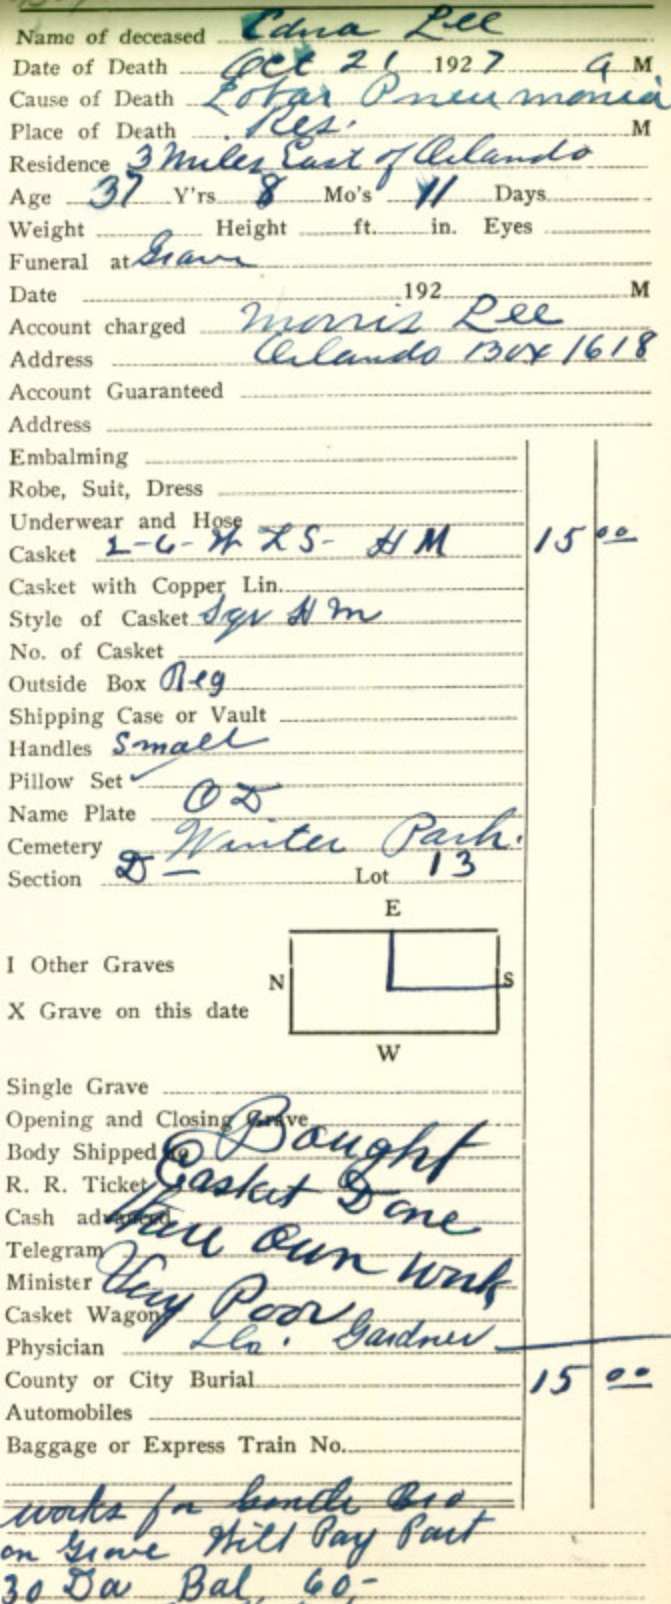 Name of deceased Edna Lee
Date of Death Oct 21 1927 a M
Cause of Death Lobar Pneumonia
Place of Death Res. M
Residence 3 Miles East of Orlando
Age 37 Y'rs 8 Mo's 11 Days
Weight Height ft. in. Eyes
Funeral at Grave
Date 192 M
Account charged Morris Lee
Address Orlando Box 1618
Account Guaranteed
Address
Embalming
Robe, Suit, Dress
Underwear and Hose
Casket H M 15 00
Casket with Copper Lin.
Style of Casket Sqr H M
No. of Casket
Outside Box Reg
Shipping Case or Vault
Handles Small
Pillow Set
Name Plate O D
Cemetery Winter Park.
Section D - Lot 13
E
I Other Graves
N S
X Grave on this date
W
Single Grave
Opening and Closing Grave
Bought
Body Shipped to
R. R. Ticket Casket Done
Cash advanced
Thair own work
Telegram
Minister Very Poor
Casket Wagon
Physician Gardner
County or City Burial 15 00
Automobiles
Baggage or Express Train No.
works for
on Grove Will Pay Part
30 Da Bal 60-